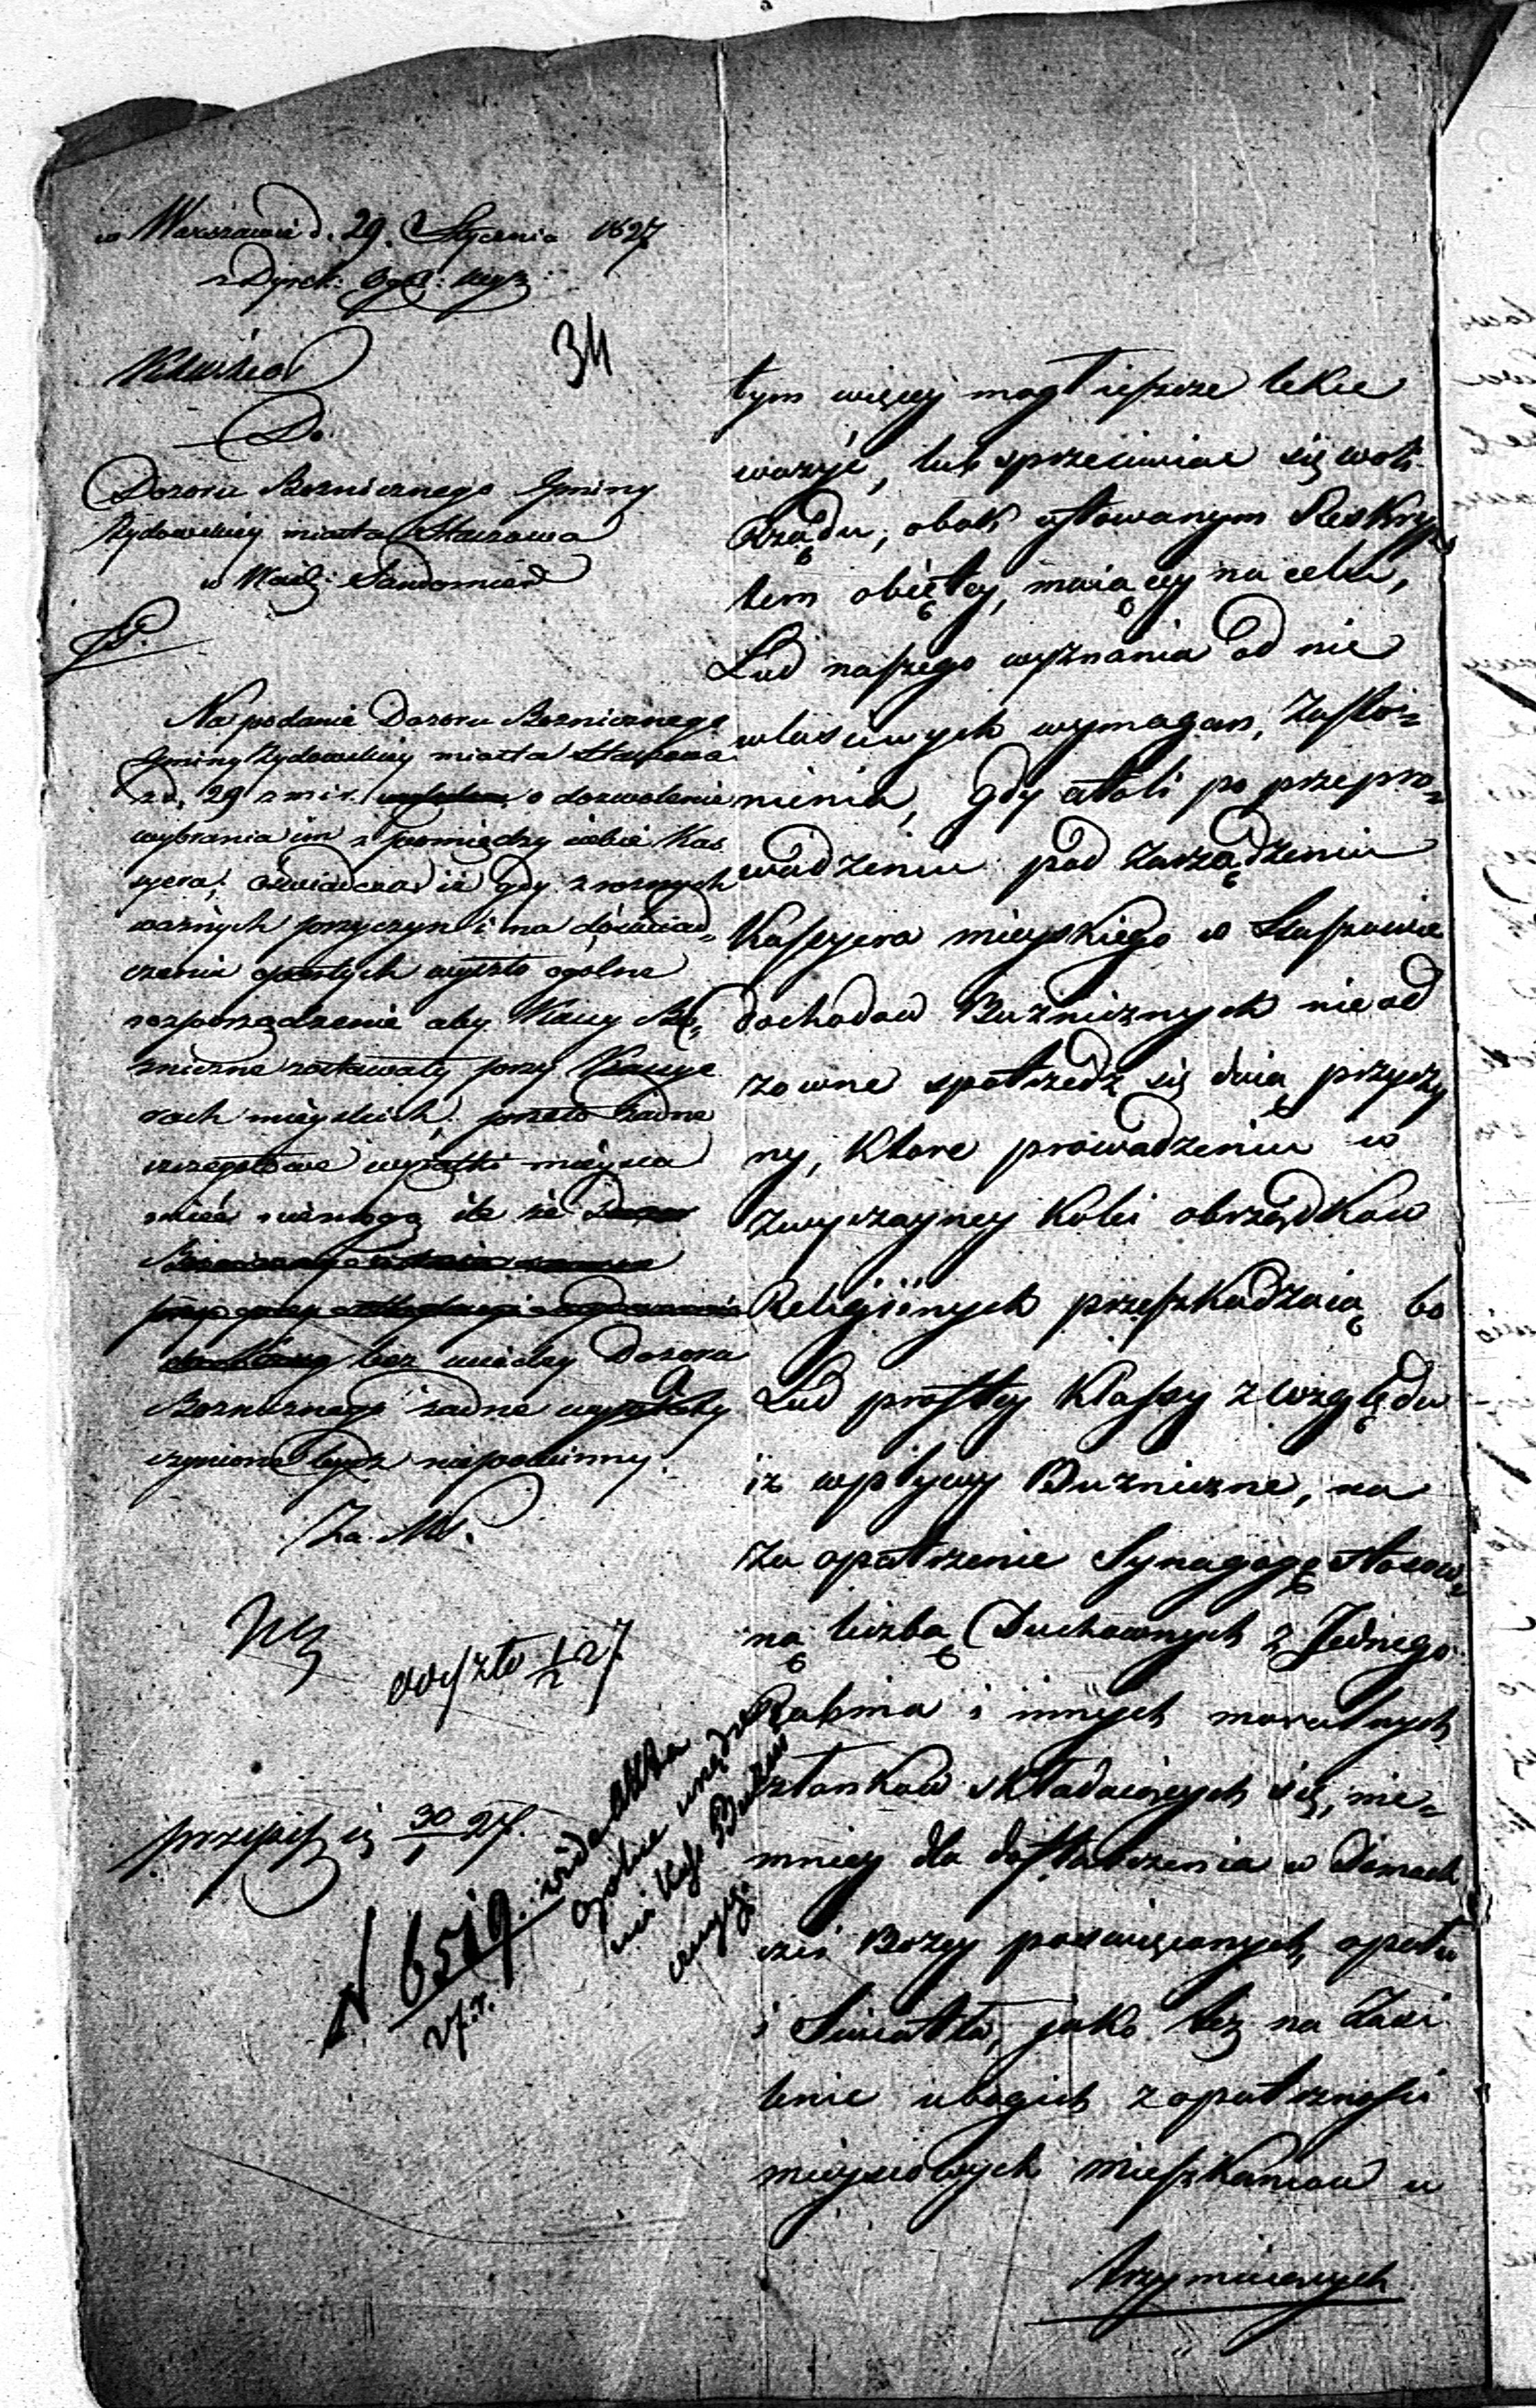 w Warszawie d. 29. Stycznia 1827
z Dyrek: Ogól: Wyz:
34
Do
Dozoru Boznicznego Gminy
Żydowskiey miasta Staszowa
w Woie: Sandomier
Na podanie Dozoru Boznicznego
Gminy Żydowskiey miasta Staszowa
z d. 29 z m i r. o dozwolenie
wybrania im z pomiędzy siebie Kas
syera; oświadcza iż gdy z roznych
ważnych przyczyn i na doświad„
czeniu opartych wyszło ogolne
rozporządzenie aby Kassy Bo„
zniczne zostawały przy Kassye
rach mieyskich, przeto żadne
szczegołowe wyiątki mieysca
mieć niemogą ile że
bez wiedzy Dozoru
Boznicznego żadne wypłaty
czynione bydz niepowinny.
Za M.
wyszło 1/2 27
przepisz ię 30/1 27.
N 6519.
27. r.
tym więcey mogł ieszcze lekce
ważyć, lub sprzeciwiac się woli
Rządu, obok cytowanym Reskryp
tem obiętey, maiącey na celu,
Lud naszego wyznania od nie
właściwych wymagan, zasło„
nienia, Gdy atoli po przepro„
wadzeniu pod Zarządzeniu
Kassyera mieyskiego w Staszowie
dochodow Buzniczných nie od
zowne spostrzedz się daią przyczy
ny, ktore prowadzeniu w
zwyczayney kolei obrządkow
Religiinych przeszkadzaią, bo
Lud prostey Klassy z względu
iż wpływy Bużniczne, na
za opatrzenie Synagogę stosow„
ną liczbą Duchownych z Jednego
Rabina i innych moralnych
członkow składaiących się, nie„
mniey dla dostarczenia w Domach
czci Bozey poswięconych, opału
i Swiatła, jako tez na Zasi
lenie ubogich z opatrznosci
mieyscowych mieszkancow u
trzymuiących